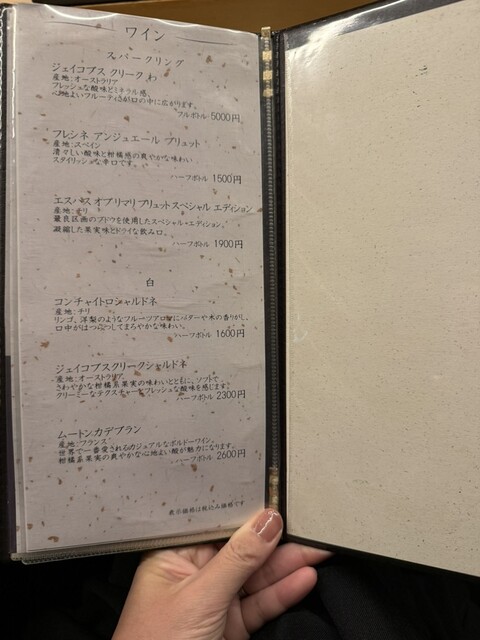 ワイン
スパークリング
ジェイコブス クリーク わ
産地:オーストラリア
フレッシュな酸味とミネラル感。
心地よいフルーティさが口の中に広がります。
フルボトル 5000円
フレシネ アンジュエール ブリュット
産地:スペイン
清々しい酸味と柑橘感の爽やかな味わい
スタイリッシュな辛口です。
ハーフボトル 1500円
エスパス オブ リマリ ブリュットスペシャル エディション
産地:チリ
最良区画のブドウを使用したスペシャル・エディション。
凝縮した果実味とドライな飲み口。
ハーフボトル 1900円
白
コンチャイトロシャルドネ
産地:チリ
リンゴ、洋梨のようなフルーツアロマにバターや木の香りがし、
口中がはつらつしてまろやかな味わい。
ハーフボトル 1600円
ジェイコブスクリークシャルドネ
産地:オーストラリア
さわやかな柑橘系果実の味わいとともに、ソフトで
クリーミーなテクスチャーとフレッシュな酸味を感じます。
ハーフボトル 2300円
ムートンカデブラン
産地:フランス
世界で一番愛されるカジュアルなボルドーワイン。
柑橘系果実の爽やかな心地よい酸が魅力になります。
ハーフボトル 2600円
表示価格は税込み価格です